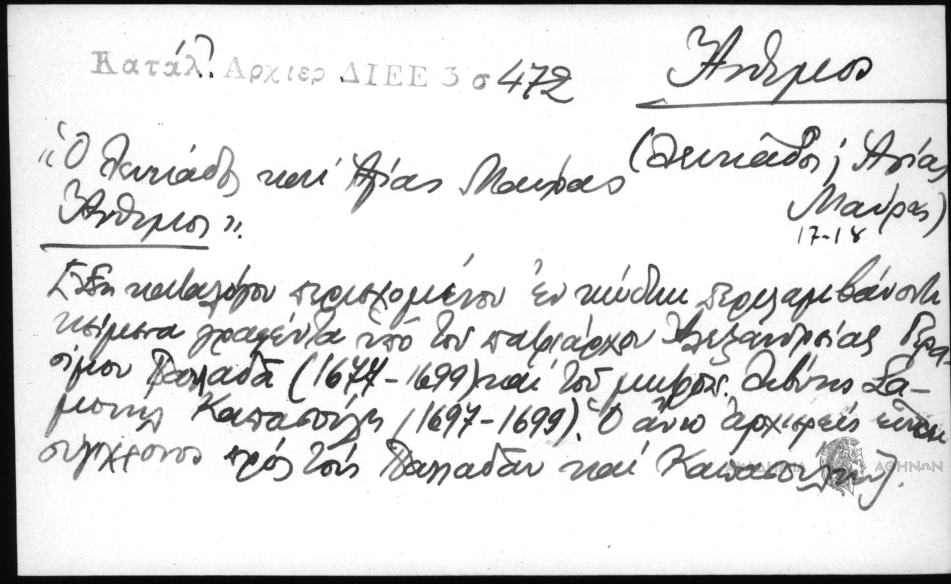 Κατάλ. Αρχιερ. ΔΙΕΕ 3 σ 472
Ἄνθιμος
«Ὁ Λευκάδος καί Ἁγίας Μαύρας
(Λευκάδος; Ἁγίας
Μαύρας)
Ἄνθιμος».
17-18
[Ἐκ καταλόγου περιεχομένου ἐν κώδικι περιλαμβάνοντι
κείμενα γραφέντα ὑπό τοῦ πατριάρχου Ἀλεξανδρείας Γερα-
σίμου Παλλαδᾶ (1677-1699) καί τοῦ μητροπ. Λιβύης Σα-
μουήλ Καπασούλη (1697-1699). Ὁ ἄνω ἀρχιερεύς εἶναι
σύγχρονος πρός τούς Παλλαδᾶν καί Καπασούλην].
ΑΚΑΔΗΜΙΑ ΑΘΗΝΩΝ